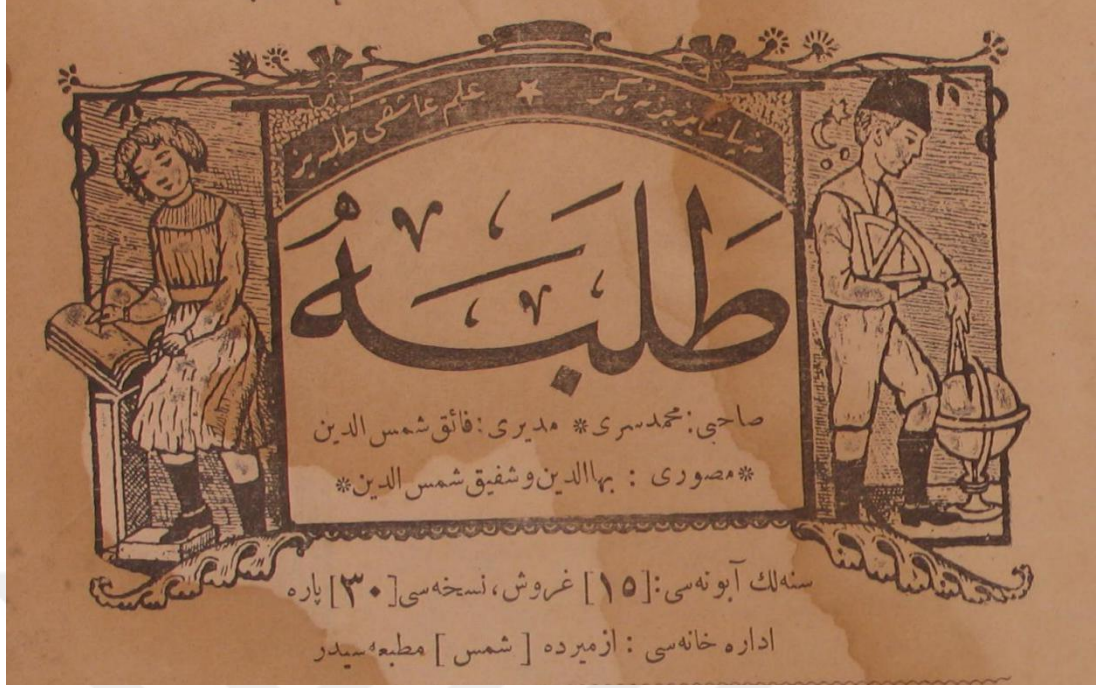 علم عاشقی طلبه‌یز
طَلَبَهُ
صاحبی: محمدسری ❋ مدیری: فائق شمس الدین
❋ مصوری : بهاالدین و شفیق شمس الدین ❋
سنه‌لك آبونه‌سی:[۱۵] غروش، نسخه‌سی[۳۰] پاره
اداره خانه‌سی : ازمیرده [ شمس ] مطبعه‌سیدر